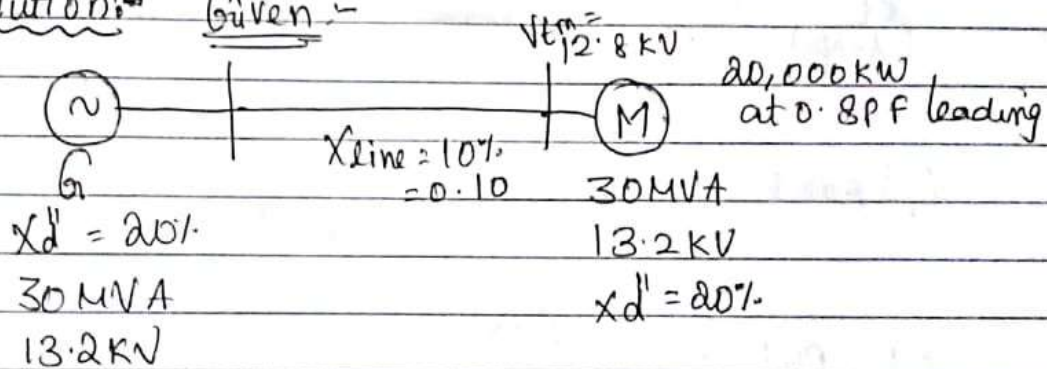 Given :-
Vtm =
12.8 KV
20,000KW
at 0.8PF leading
~
M
Xline = 10%.
= 0.10
G
30MVA
Xd" = 20%.
13.2 KV
30 MVA
Xd" = 20%.
13.2KV